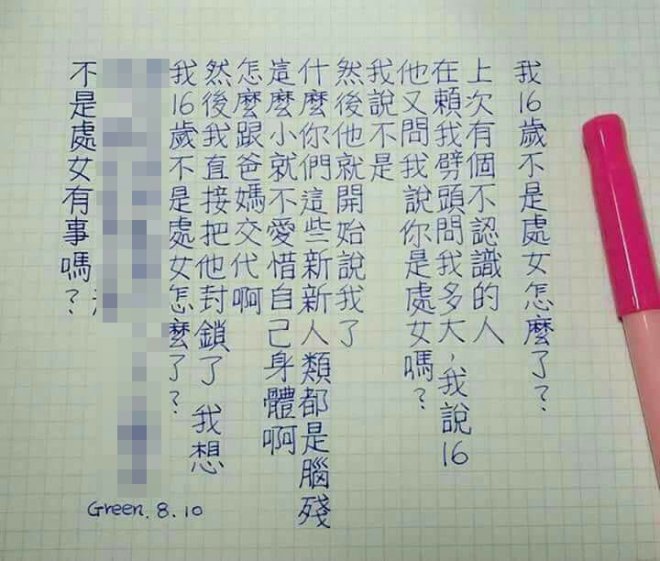 我16歲不是處女怎麼了?
上次有個不認識的人
在賴我劈頭問我多大,我說16
他又問我說你是處女嗎?
我說不是
然後他就開始說我了
什麼你們這些新新人類都是腦殘
這麼小就不愛惜自己身體啊
怎麼跟爸媽交代啊
然後我直接把他封鎖了 我想
我16歲不是處女怎麼了?
不是處女有事嗎?
Green. 8. 10